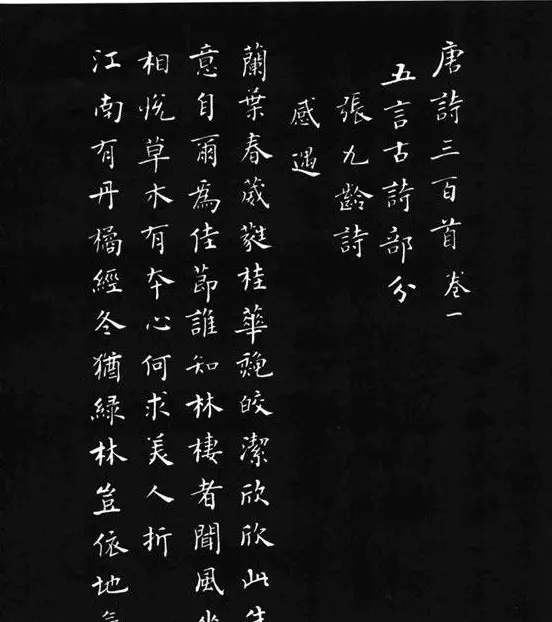 唐詩三百首 卷一
五言古詩部分
張九齡詩
感遇
蘭葉春葳蕤桂華穐皎潔欣欣此生
意自爾爲佳節誰知林棲者聞風坐
相悅草木有夲心何求美人折
江南有丹橘經冬猶綠林豈依地